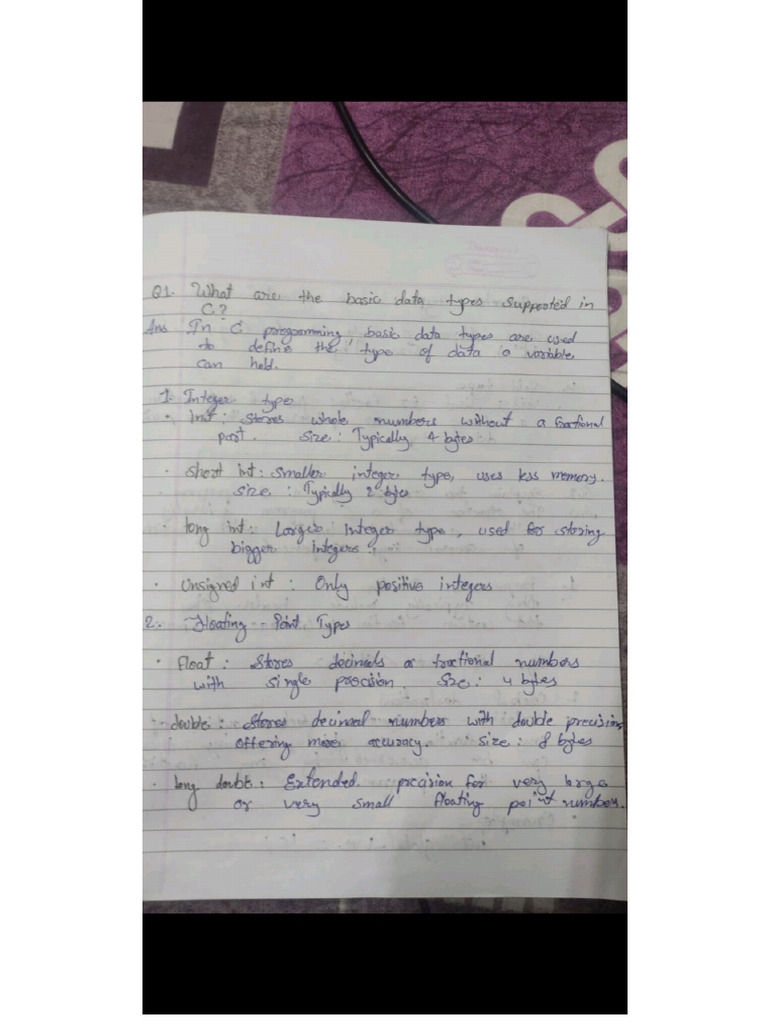 Q1. What are the basic data types supported in
C?
Ans In C programming basic data types are used
to define the type of data a variable
can hold.
1. Integer type
• Int : Stores whole numbers without a fractional
part. Size : Typically 4 bytes
• Short int : Smaller integer type, uses less memory.
Size : Typically 2 bytes
• long int : Larger Integer type, used for storing
bigger integers.
• Unsigned int : Only positive integers
2. Floating - Point Types
• float : Stores decimals or fractional numbers
with single precision Size : 4 bytes
• double : Stores decimal numbers with double precision,
offering more accuracy. Size : 8 bytes
• long double : Extended precision for very large
or very small floating point numbers.